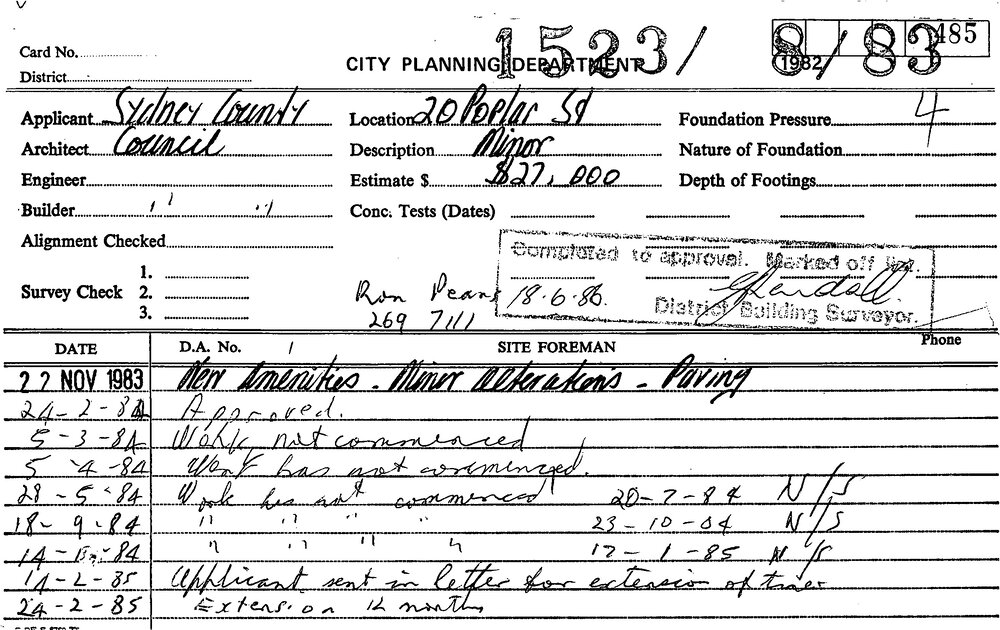 1523/ 8/83 485
Card No.
CITY PLANNING DEPARTMENT 1982
District
Applicant Sydney County Location 20 Poplar St Foundation Pressure 4
Architect Council Description Minor Nature of Foundation
Engineer Estimate $ $27,000 Depth of Footings
Builder " " Conc. Tests (Dates)
Alignment Checked
Completed to approval. Marked off list.
1.
Survey Check 2. Ron 18.6.86
District Building Surveyor.
3. 269 7111
Phone
DATE D.A. No. SITE FOREMAN
22 NOV 1983 New amenities - Minor alterations - Paving
24-2-84 Approved.
5-3-84 Work not commenced
5-4-84 Work has not commenced.
28-5-84 Work has not commenced 20-7-84 N/S
18-9-84 " " " " 23-10-84 N/S
14- -84 " " " " 17-1-85 N/S
14-2-85 Applicant sent in letter for extension of time
24-2-85 Extension 12 months